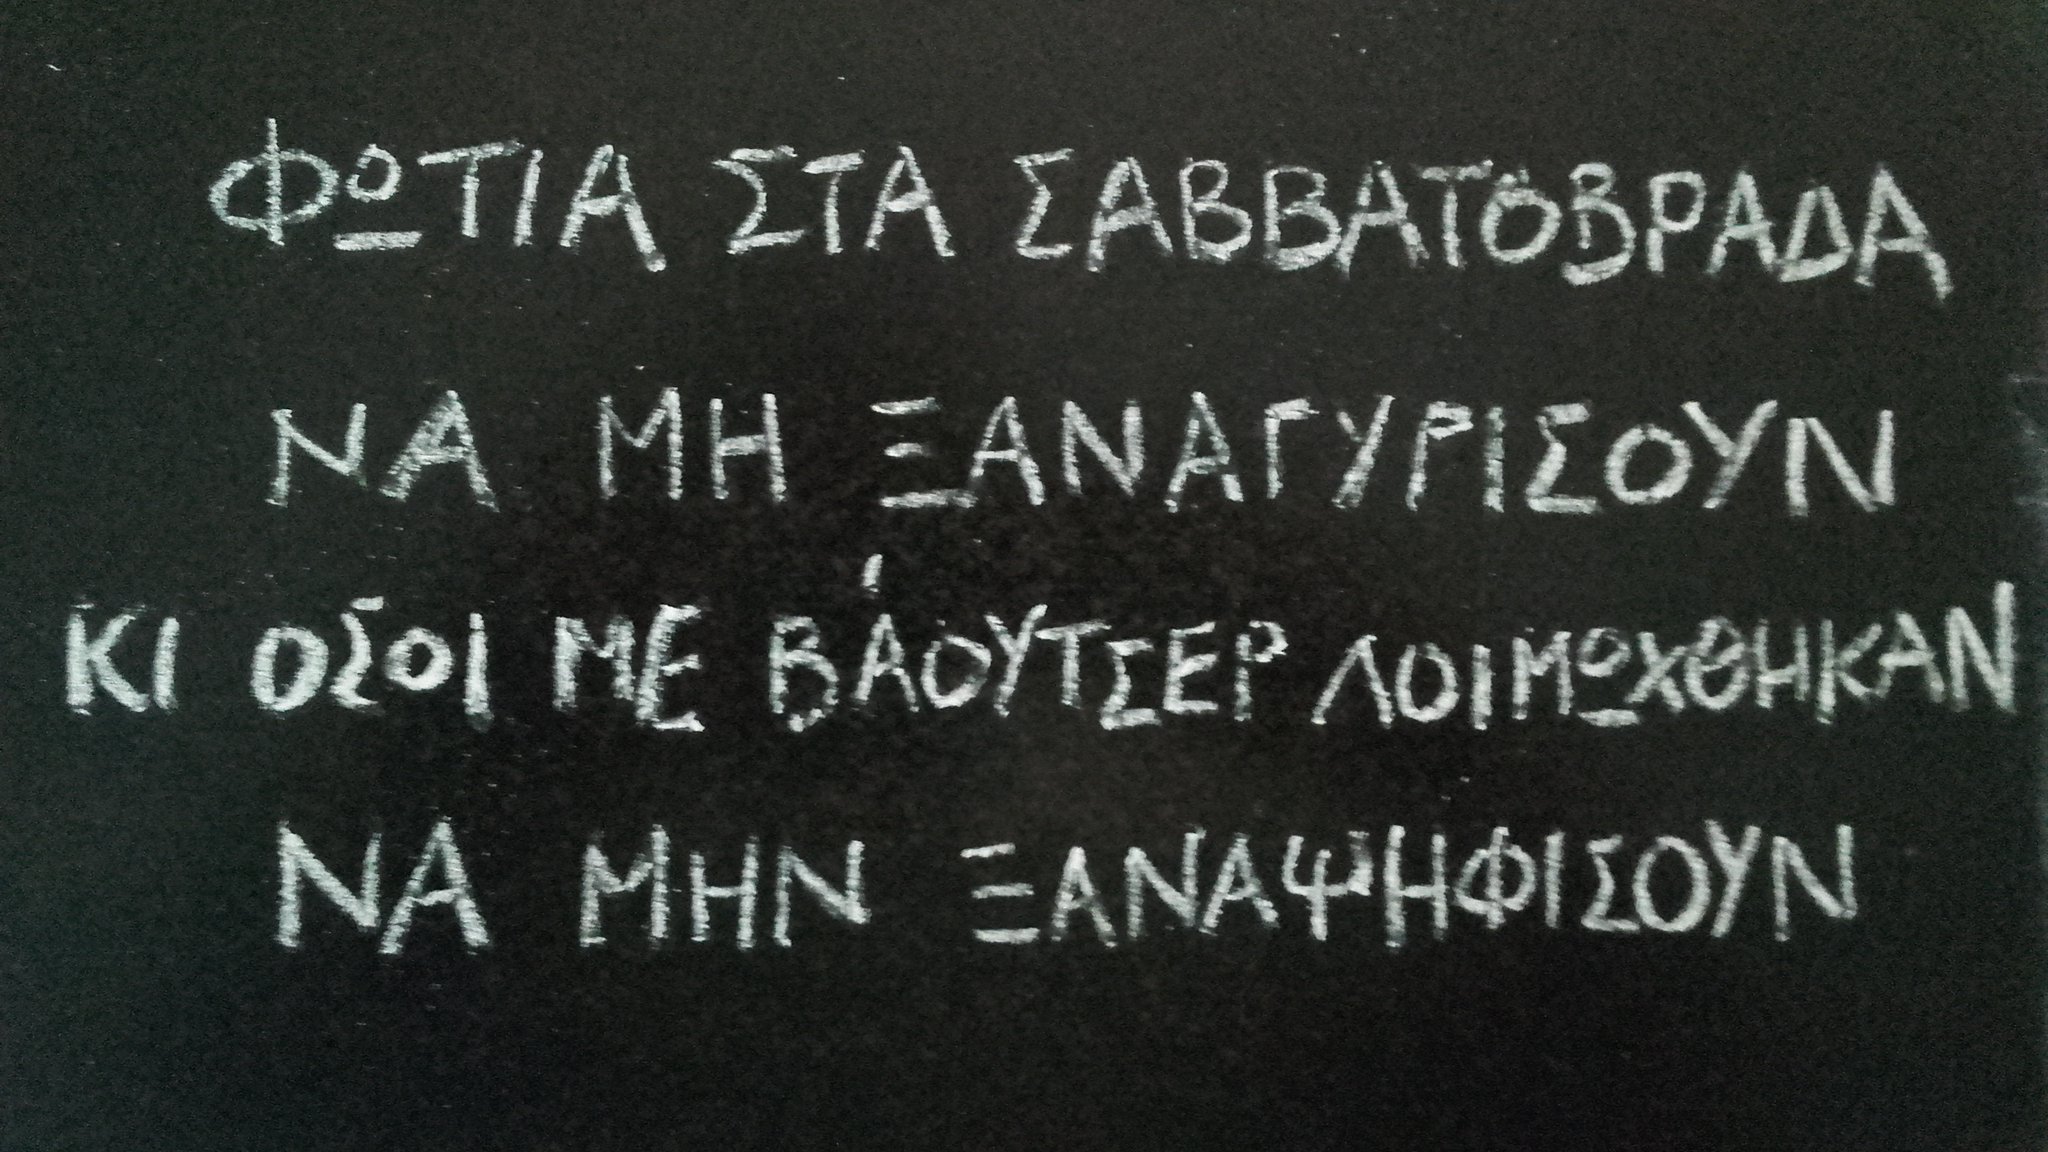 ΦΩΤΙΑ ΣΤΑ ΣΑΒΒΑΤΟΒΡΑΔΑ
ΝΑ ΜΗ ΞΑΝΑΓΥΡΙΣΟΥΝ
ΚΙ ΟΣΟΙ ΜΕ ΒΆΟΥΤΣΕΡ ΛΟΙΜΩΧΘΗΚΑΝ
ΝΑ ΜΗΝ ΞΑΝΑΨΗΦΙΣΟΥΝ